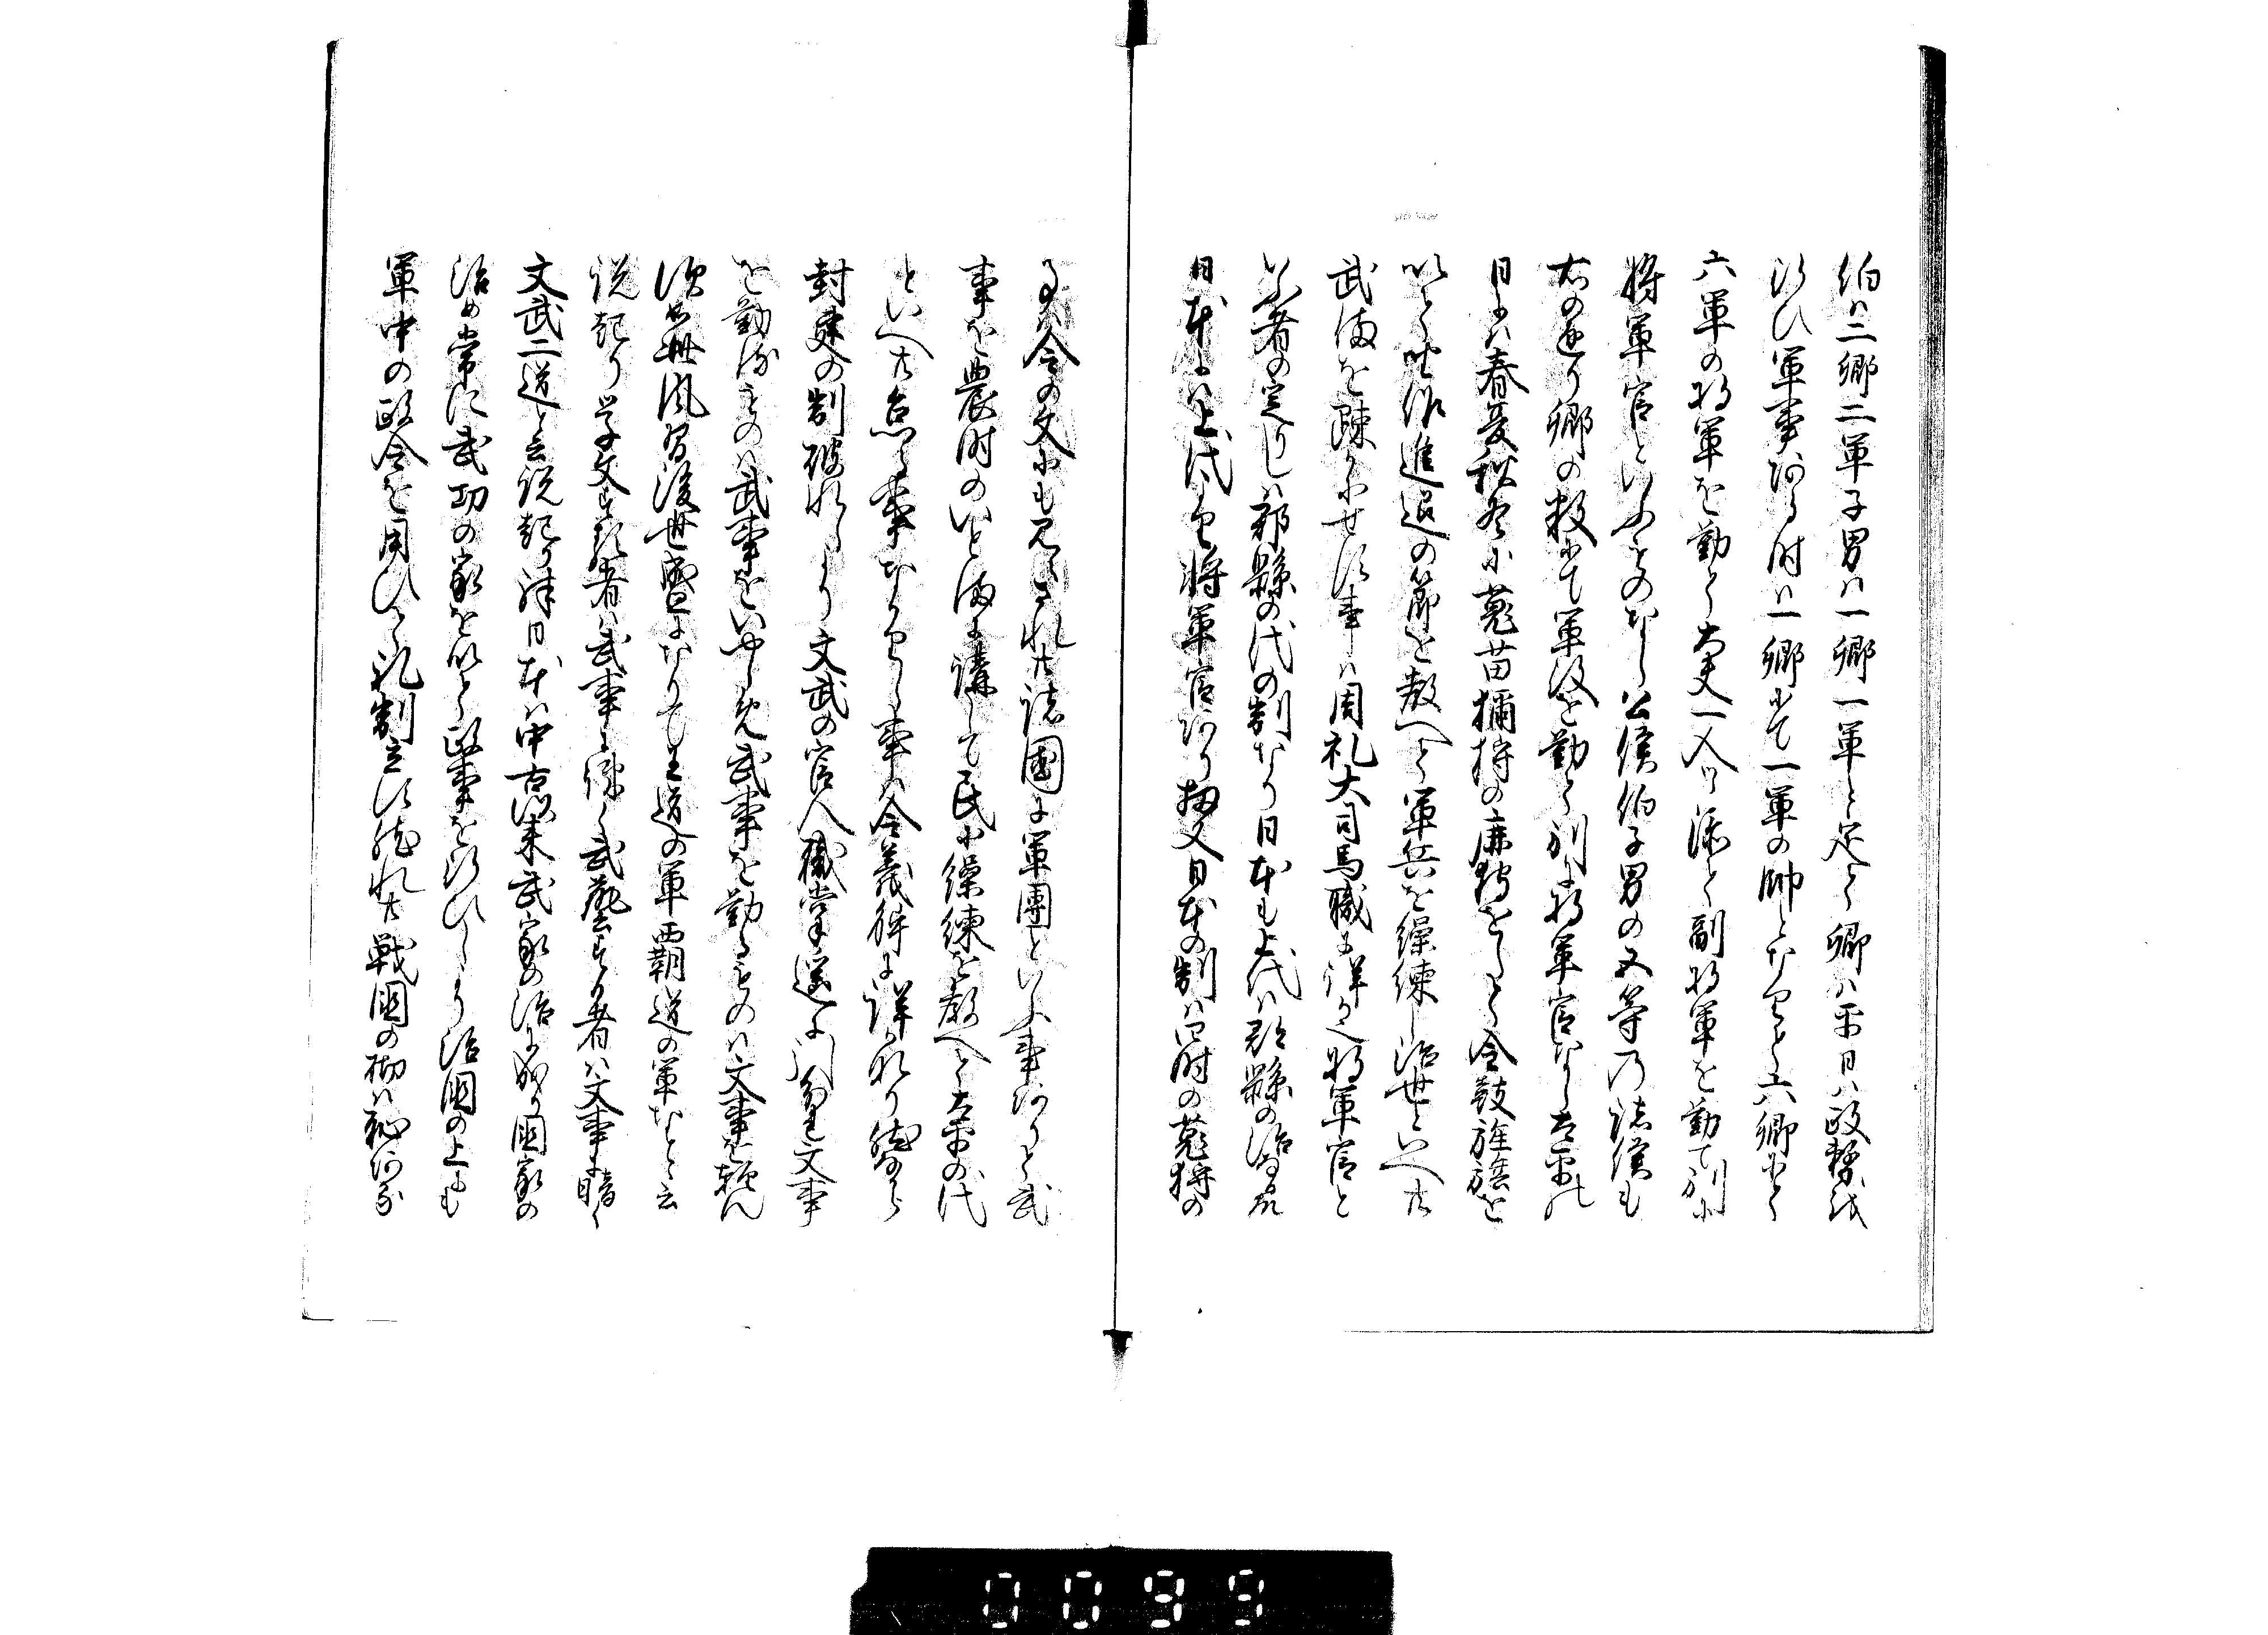 伯ハ二郷二軍子男ハ一郷一軍と定て郷ハ平日ハ政務を
行ひ軍事ある時ハ一郷にて一軍の帥となりて六郷にて
六軍の将軍を勤て大夫一人ツヽ添て副将軍を勤て別に
将軍官といふものなし公侯伯子男の五等の諸侯も
右の通り郷の数にて軍役を勤て別に将軍官なし太平の
日にハ春夏秋冬に蒐苗獮狩の田猟をして金鼓旌旗を
以て坐作進退の節を教へて軍兵を操練し治世といへ共
武備を疎かにせす事ハ周礼大司馬職に詳か也将軍官と
いふ者の定りしハ郡縣の代の制なり日本も上代ハ郡縣の治なる故
日本にハ上代より将軍官あり扨又日本の制ハ四時の蒐狩の
事ハ令の文にも見へされ共諸國に軍團といふ事ありて武
事を農時のいとまに講して民に操練を教へて太平の代
といへ共怠る事なかりし事ハ令義解に詳なり然るに
封建の制破れしより文武の官人職掌遥に別れ文事
を勤るものハ武事をいやしめ武事を勤るものハ文事を疎ん
須世風習後世盛になりて王道の軍覇道の軍なと云
説起り学文する者ハ武事に疎く武藝する者ハ文事に暗く
文武二道と云説起り殊日本ハ中古以来武家の治に成り國家の
治め常に武功の家を以て政事を行ひしより治國の上にも
軍中の政令を用ひて礼制立す然れ共戦國の初ハ礼ある